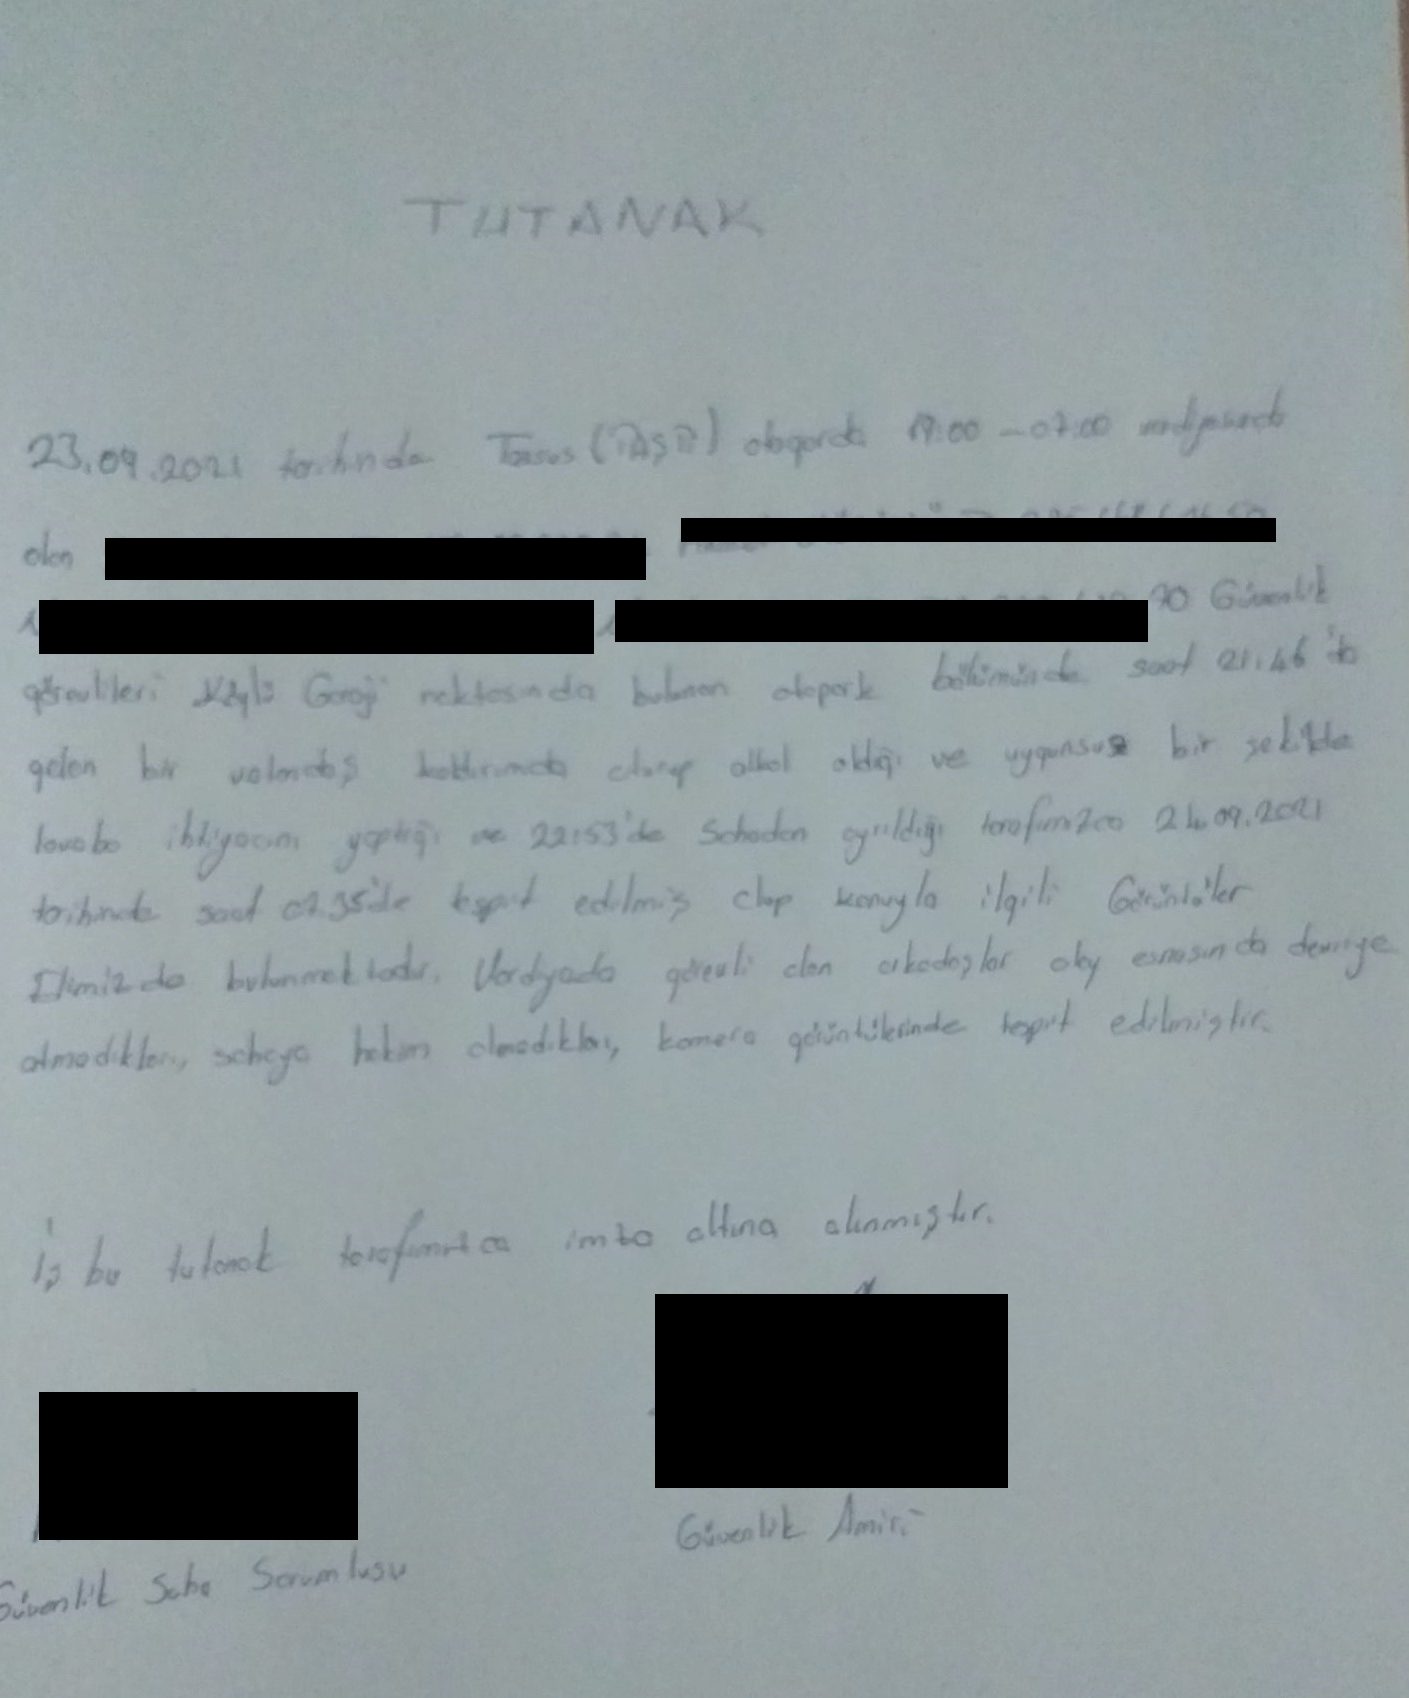 TUTANAK
23.09.2021 tarihinde Tarsus otogarda 19:00 – 07:00 vardiyasında
olan
Güvenlik
görevlileri Köylü Garajı noktasında bulunan otopark bölümünde saat 21:46'da
gelen bir vatandaş kaldırımda oturup alkol aldığı ve uygunsuz bir şekilde
lavabo ihtiyacını yaptığı ve 22:53'de Sahadan ayrıldığı tarafımızca 24.09.2021
tarihinde saat 07.35'de tespit edilmiş olup konuyla ilgili Görüntüler
Elimizde bulunmaktadır. Vardiyada görevli olan arkadaşlar olay esnasında devriye
atmadıkları, sahaya hakim olmadıkları, kamera görüntülerinde tespit edilmiştir.
İş bu tutanak tarafımızca imza altına alınmıştır.
Güvenlik Amiri
Güvenlik Saha Sorumlusu